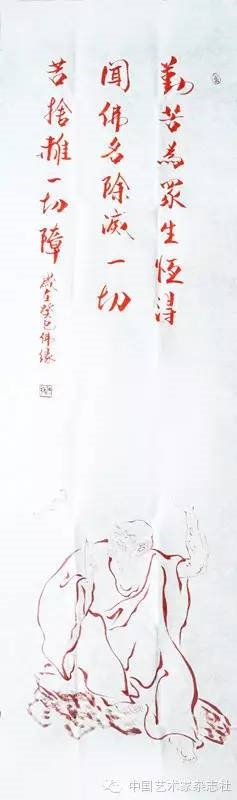 勤苦為眾生恆得
聞佛名除滅一切
苦捨離一切障
歲在癸巳佛缘
中国艺术家杂志社